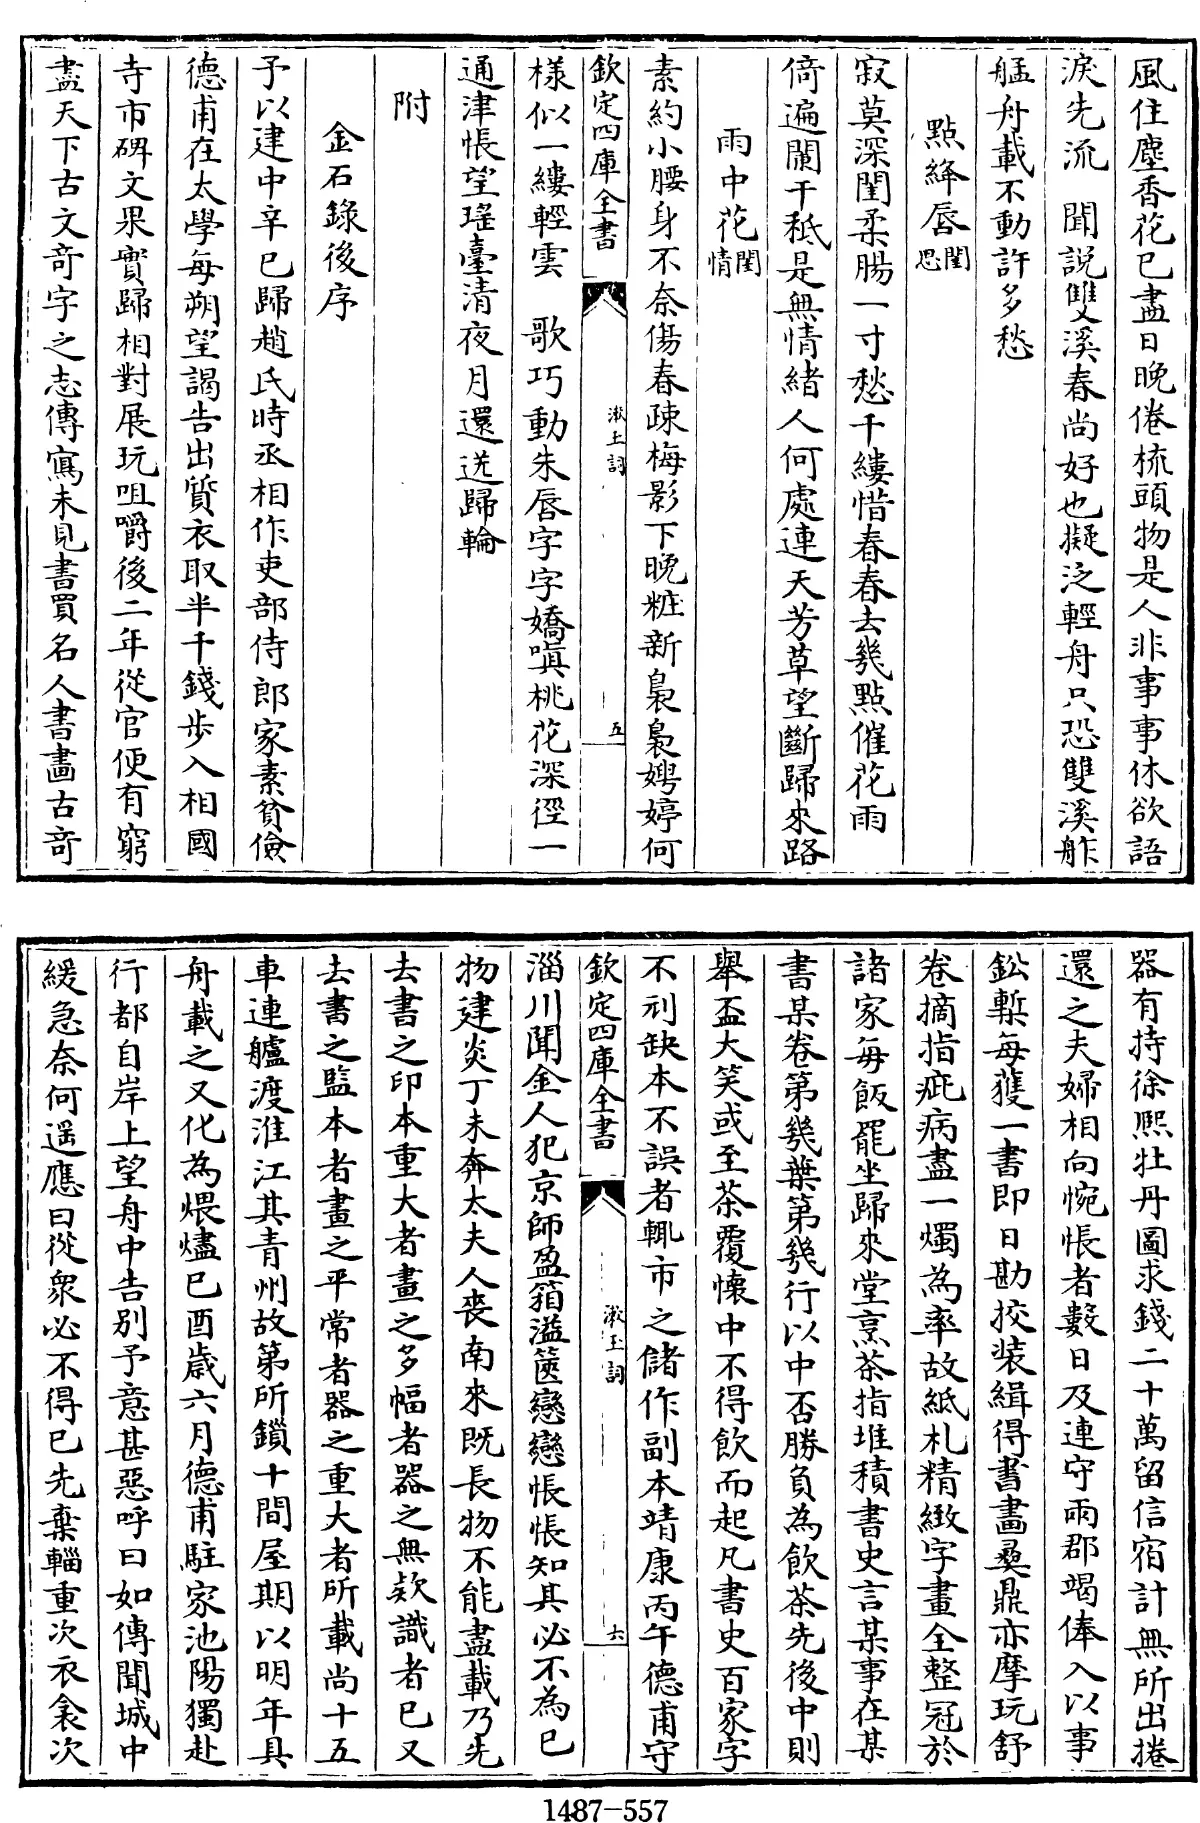 風住塵香花已盡日晚倦梳頭物是人非事事休欲語
淚先流　聞說雙溪春尚好也擬泛輕舟只恐雙溪舴
艋舟載不動許多愁
點絳唇閨思
寂莫深閨柔腸一寸愁千縷惜春春去幾點催花雨
倚遍闌干秪是無情緒人何處連天芳草望斷歸來路
雨中花閨情
素約小腰身不奈傷春疎梅影下晚粧新裊裊娉婷何
欽定四庫全書
漱玉詞
五
樣似一縷輕雲　歌巧動朱唇字字嬌嗔桃花深徑一
通津悵望瑤臺清夜月還送歸輪
附
金石錄後序
予以建中辛巳歸趙氏時丞相作吏部侍郎家素貧儉
德甫在太學每朔望謁告出質衣取半千錢步入相國
寺市碑文果實歸相對展玩咀嚼後二年從官便有窮
盡天下古文奇字之志傳寫未見書買名人書畫古奇
器有持徐熙牡丹圖求錢二十萬留信宿計無所出捲
還之夫婦相向惋悵者數日及連守兩郡竭俸入以事
鈆槧每獲一書即日勘挍装緝得書畫彝鼎亦摩玩舒
卷摘指疵病盡一燭為率故紙札精緻字畫全整冠於
諸家每飯罷坐歸來堂烹茶指堆積書史言某事在某
書某卷第幾葉第幾行以中否勝負為飲茶先後中則
舉盃大笑或至茶覆懷中不得飲而起凡書史百家字
不刓缺本不誤者輒市之儲作副本靖康丙午德甫守
欽定四庫全書
漱玉詞
六
淄川聞金人犯京師盈箱溢篋戀戀悵悵知其必不為已
物建炎丁未奔太夫人喪南來既長物不能盡載乃先
去書之印本重大者畫之多幅者器之無款識者已又
去書之監本者畫之平常者器之重大者所載尚十五
車連艫渡淮江其青州故第所鎖十間屋期以明年具
舟載之又化為煨燼己酉歲六月德甫駐家池陽獨赴
行都自岸上望舟中告別予意甚惡呼曰如傳聞城中
緩急奈何遥應曰從衆必不得已先棄輜重次衣衾次
1487-557